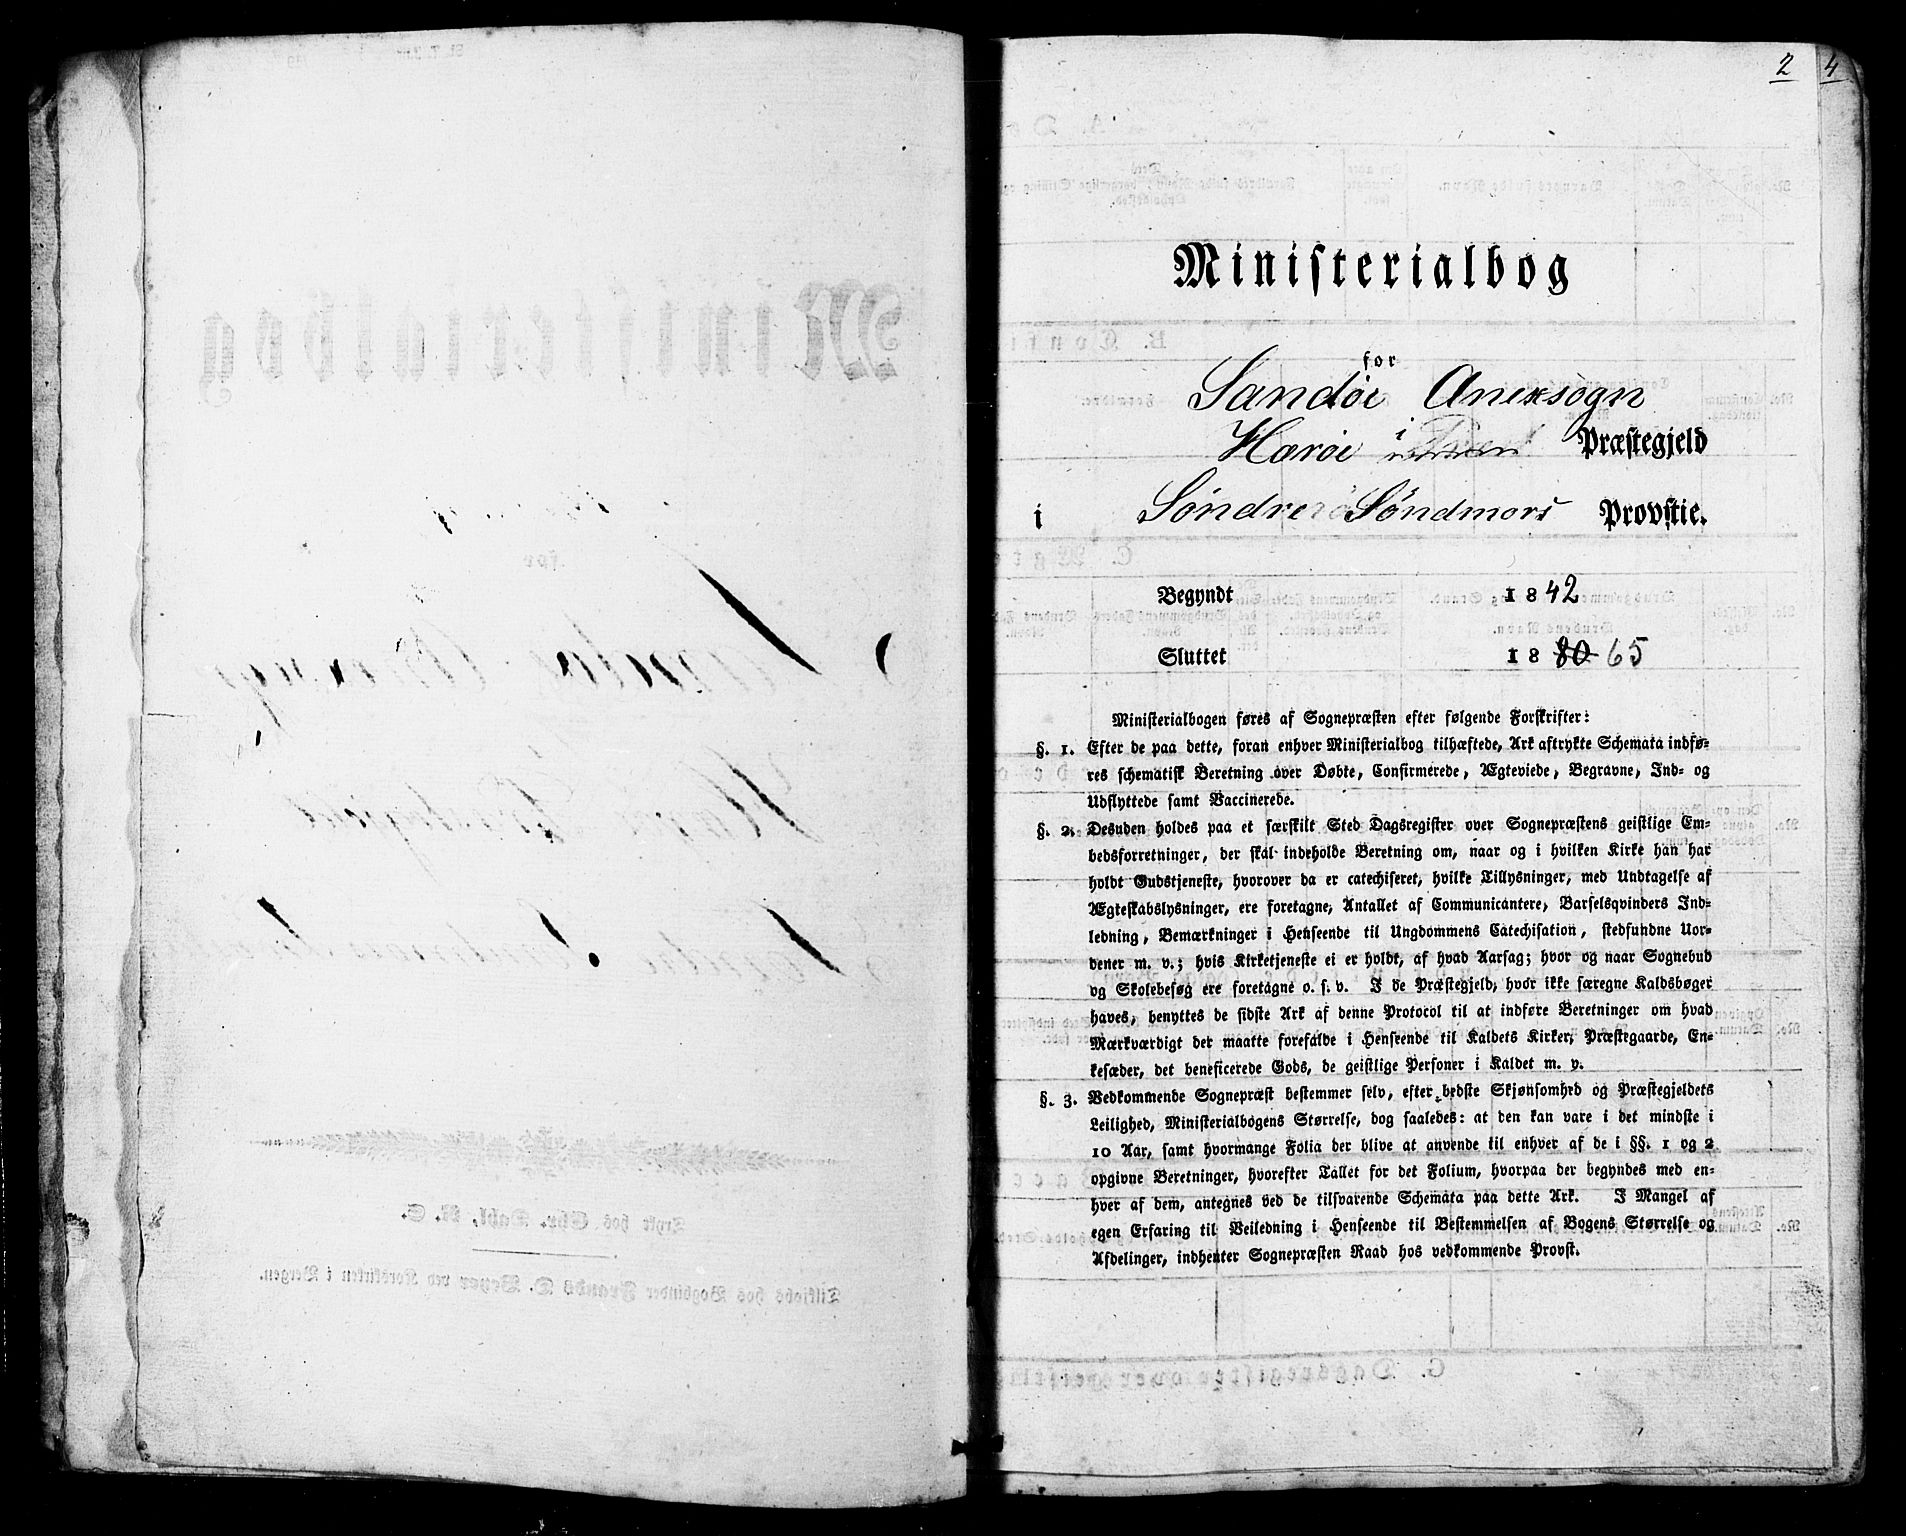 2 4
Ministerialbog
for
Sandøe Anexsogn
Herøe i Præstegjeld
i Søndre Søndmørs Provstie.
Begyndt 1842
Sluttet 18 80 65
Ministerialbogen føres af Sognepræsten efter følgende Forskrifter:
§. 1. Efter de paa dette, foran enhver Ministerialbog tilhæftede, Ark aftrykte Schemata indfø-
res schematisk Beretning over Døbte, Confirmerede, Ægteviede, Begravne, Ind- og
Udflyttede samt Vaccinerede.
§. 2. Desuden holdes paa et særskilt Sted Dagsregister over Sognepræstens geistlige Em-
bedsforretninger, der skal indeholde Beretning om, naar og i hvilken Kirke han har
holdt Gudstjeneste, hvorover da er catechiseret, hvilke Tillysninger, med Undtagelse af
Ægteskabslysninger, ere foretagne, Antallet af Communicantere, Barselqvinders Ind-
ledning, Bemærkninger i Henseende til Ungdommens Catechisation, stedfundne Uor-
dener m. v.; hvis Kirketjeneste ei er holdt, af hvad Aarsag; hvor og naar Sognebud
og Skolebesøg ere foretagne o. s. v. I de Præstegjeld, hvor ikke særegne Kaldsbøger
haves, benyttes de sidste Ark af denne Protocol til at indføre Beretninger om hvad
Mærkværdigt der maatte forefalde i Henseende til Kaldets Kirker, Præstegaarde, En-
kesæder, det beneficerede Gods, de geistlige Personer i Kaldet m. v.
§. 3. Vedkommende Sognepræst bestemmer selv, efter bedste Skjønsomhed og Præstegjeldets
Leilighed, Ministerialbogens Størrelse, dog saaledes: at den kan vare i det mindste i
10 Aar, samt hvormange Folia der blive at anvende til enhver af de i §§. 1 og 2
opgivne Beretninger, hvorefter Tallet for det Folium, hvorpaa der begyndes med en-
hver af dem, antegnes ved de tilsvarende Schemata paa dette Ark. I Mangel af
egen Erfaring til Veiledning i Henseende til Bestemmelsen af Bogens Størrelse og
Afdelinger, indhenter Sognepræsten Raad hos vedkommende Provst.